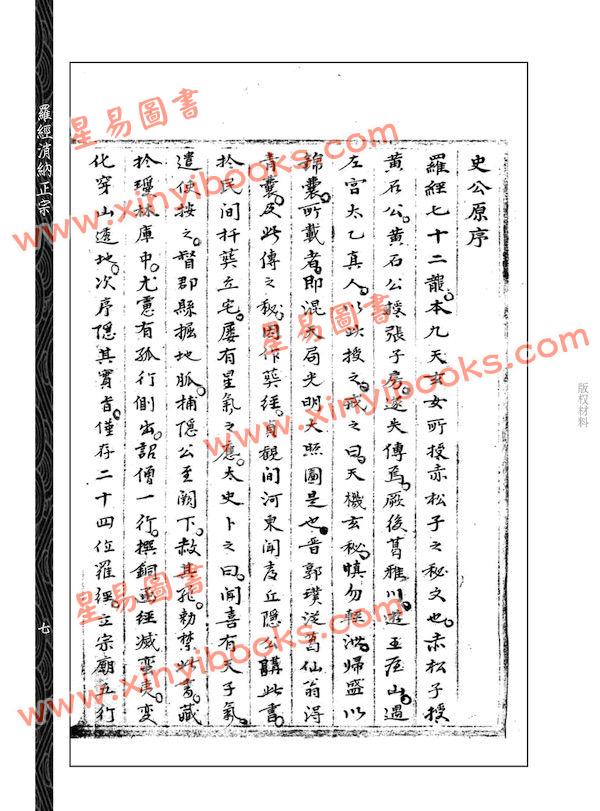 羅經消納正宗
七
史公原序
羅經七十二龍。本九天玄女所授赤松子之秘文也。赤松子授
黃石公。黃石公授張子房。遂失傳焉。厥後葛雅川。遊王屋山。遇
左宮太乙真人。以此授之。戒之曰。天機玄秘。慎勿輕洩。歸盛以
錦囊。所載者。即混天局光明大照圖是也。晋郭璞從葛仙翁得
青囊。及此傳之秘。因作葬經。貞觀間河東聞喜丘隱公購此書。
於民間扦葬立宅。屢有星氣之應。太史卜之曰。聞喜有天子氣。
遣使按之。督郡縣掘地脈。捕隱公至闕下。赦其死。勅禁此書。藏
於瓊林庫中。尤慮有孤行側出。詔僧一行。撰銅函經滅蠻夷。變
化穿山透地。次序隱其實旨。僅存二十四位羅經。立宗廟五行
版权材料
星易圖書
www.xinyibooks.com
星易圖書
www.xinyibooks.com
星易圖書
www.xinyibooks.com